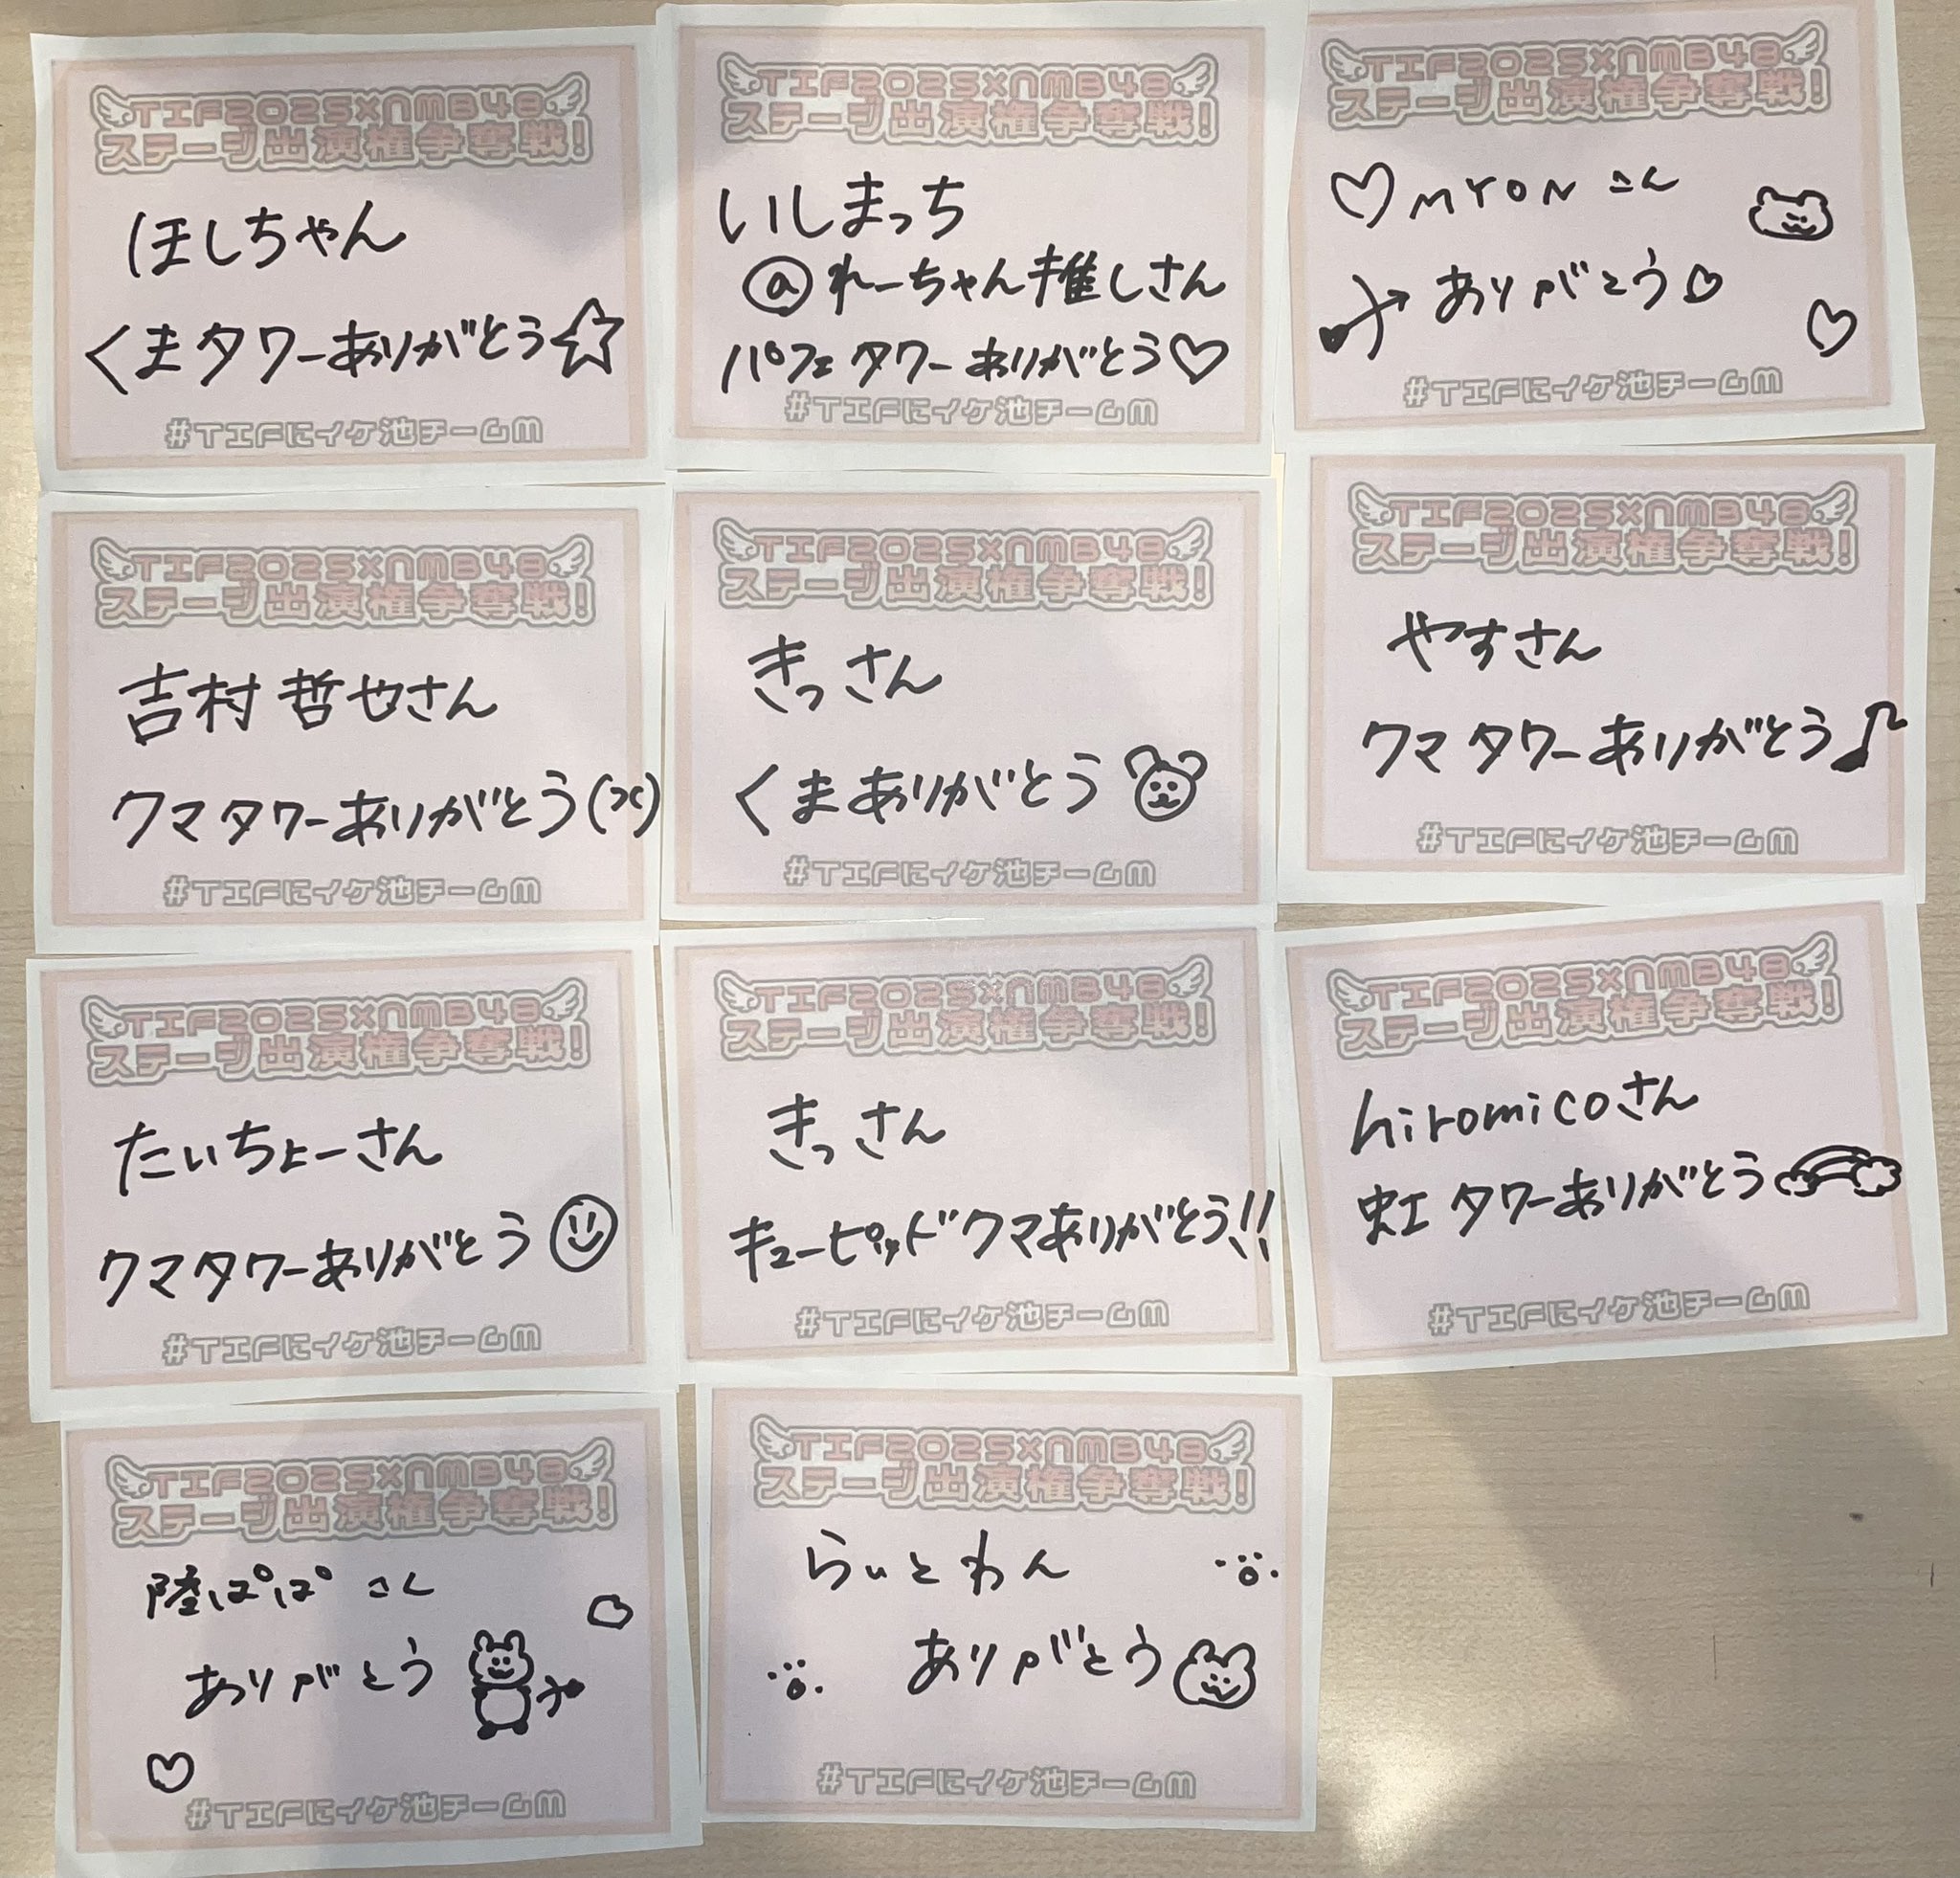 TIF2025×NMB48
ステージ出演権争奪戦!
ほしちゃん
くまタワーありがとう
#TIFにイケ池チームM
TIF2025×NMB48
ステージ出演権争奪戦!
いしまっち
@れーちゃん推しさん
パフェタワーありがとう
#TIFにイケ池チームM
TIF2025×NMB48
ステージ出演権争奪戦!
MYONさん
ありがとう
#TIFにイケ池チームM
TIF2025×NMB48
ステージ出演権争奪戦!
吉村哲也さん
クマタワーありがとう
#TIFにイケ池チームM
TIF2025×NMB48
ステージ出演権争奪戦!
きっさん
くまありがとう
#TIFにイケ池チームM
TIF2025×NMB48
ステージ出演権争奪戦!
やすさん
クマタワーありがとう♪
#TIFにイケ池チームM
TIF2025×NMB48
ステージ出演権争奪戦!
たいちょーさん
クマタワーありがとう
#TIFにイケ池チームM
TIF2025×NMB48
ステージ出演権争奪戦!
きっさん
キューピッドクマありがとう!!
#TIFにイケ池チームM
TIF2025×NMB48
ステージ出演権争奪戦!
hiromicoさん
虹タワーありがとう
#TIFにイケ池チームM
TIF2025×NMB48
ステージ出演権争奪戦!
陸ぱぱさん
ありがとう
#TIFにイケ池チームM
TIF2025×NMB48
ステージ出演権争奪戦!
らいとわん
ありがとう
#TIFにイケ池チームM